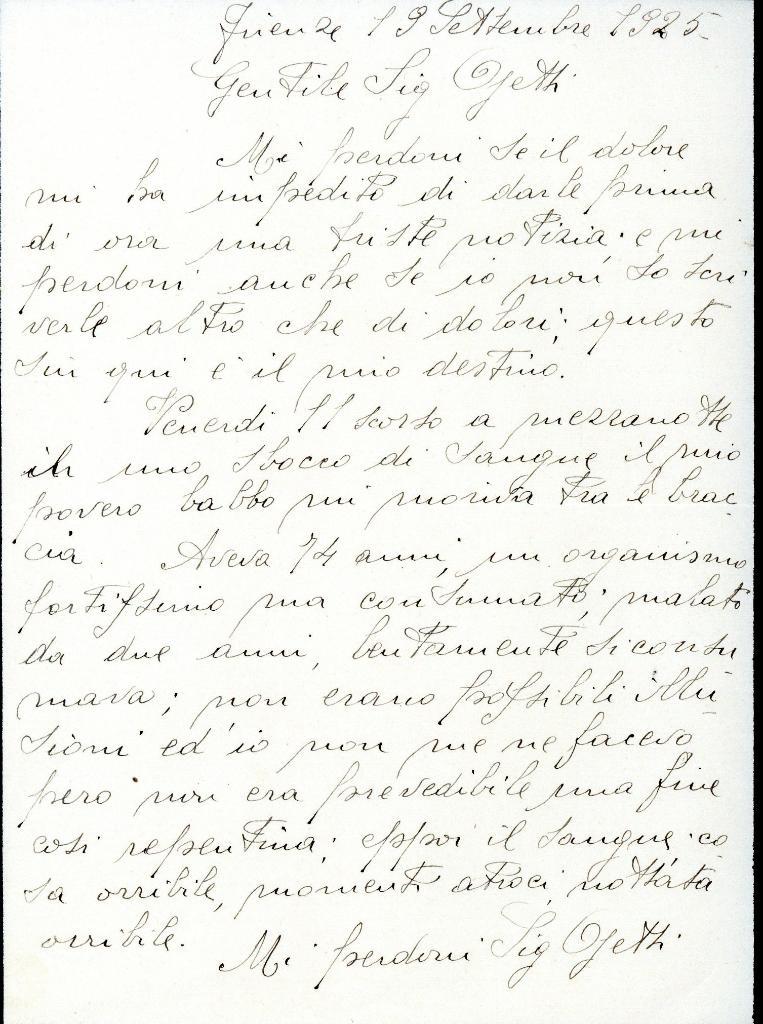 Firenze 19 Settembre 1925
Gentile Sig Ojetti
Mi perdoni se il dolore
mi ha impedito di darle prima
di ora una triste notizia: e mi
perdoni anche se io non so scri
verle altro che di dolori; questo
sin qui è il mio destino.
Venerdi 11 scorso a mezzanotte
in uno sbocco di sangue il mio
povero babbo mi moriva tra le brac-
cia. Aveva 74 anni, un organismo
fortissimo ma consumato; malato
da due anni, lentamente si consu
mava; non erano possibili illu
sioni ed' io non me ne facevo
pero non era prevedibile una fine
cosi repentina; eppoi il sangue: co
sa orribile, momenti atroci, nottata
orribile.
Mi perdoni Sig Ojetti